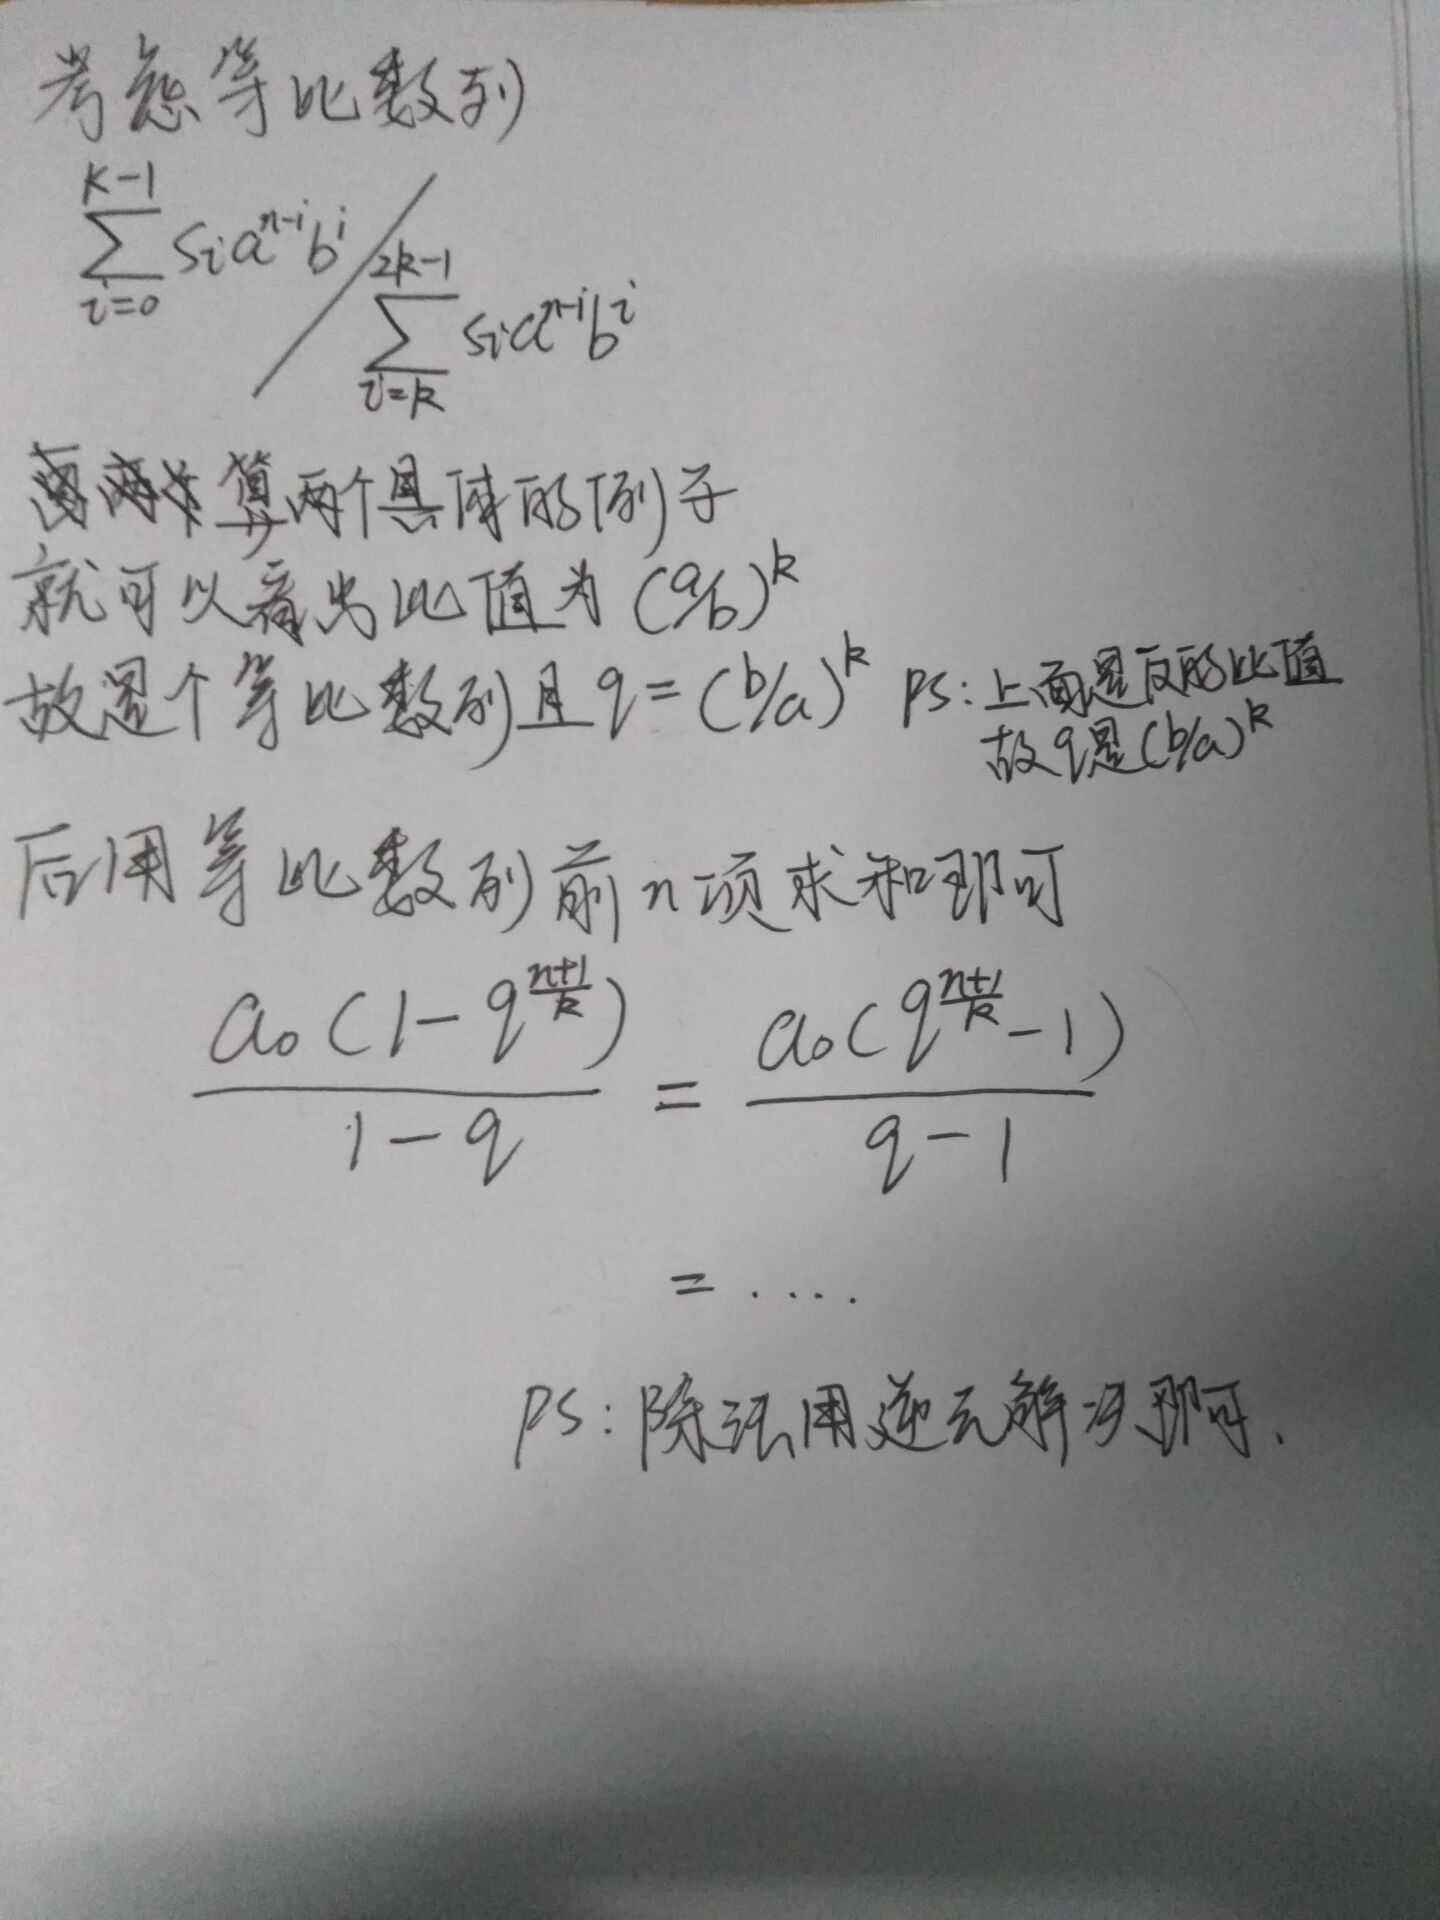 考虑等比数列
k-1
∑ sᵢaⁿ⁻ⁱbⁱ / 2k-1
i=0 ∑ sᵢaⁿ⁻ⁱbⁱ
i=k
算两个具体的例子
就可以看出比值为 (a/b)^k
故是个等比数列且 q = (b/a)^k PS:上面是反的比值
故q是(b/a)^k
后用等比数列前n项求和即可
a₀(1-q^((n+1)/k)) / (1-q) = a₀(q^((n+1)/k)-1) / (q-1)
= ....
PS:除法用逆元解决即可.